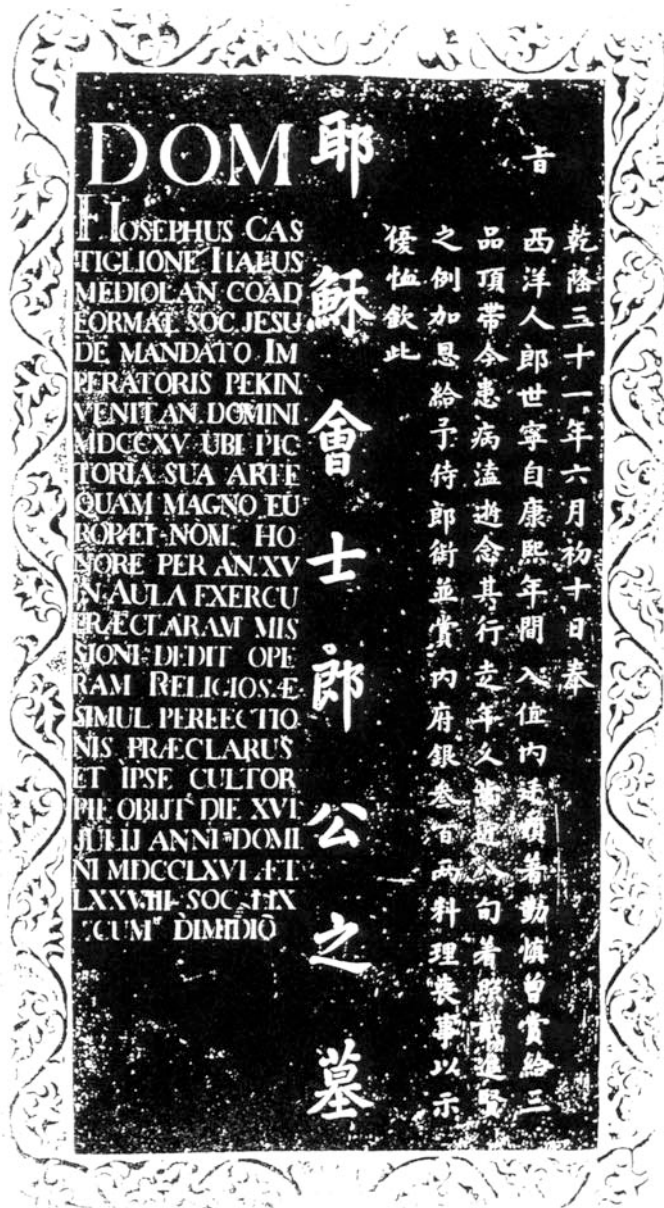 DOM
F. IOSEPHUS CAS
TIGLIONE ITALUS
MEDIOLAN COAD
FORMAT SOC JESU
DE MANDATO IM
PERATORIS PEKIN
VENIT AN. DOMINI
MDCCXV UBI PIC
TORIA SUA ARTE
QUAM MAGNO EU
ROPÆI NOM. HO
NORE PER AN. XV
IN AULA EXERCU
PRÆCLARAM MIS
SIONI DEDIT OPE
RAM RELIGIOSÆ
SIMUL PERFECTIO
NIS PRÆCLARUS
ET IPSE CULTOR
PIE OBIJT DIE XVI
JULIJ ANNI DOMI
NI MDCCLXVI ÆT
LXXVIII SOC LIX
CUM DIMIDIO
耶穌會士郎公之墓
乾隆三十一年六月初十日奉
旨西洋人郎世寧自康熙年間入值內廷頗著勤慎曾賞給三
品頂帶今患病溘逝念其行走年久齒近八旬著照戴進賢
之例加恩給予侍郎銜並賞內府銀叁百兩料理喪事以示
優恤欽此